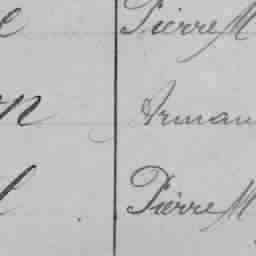 e Pierre M
n Arman
l Pierre M